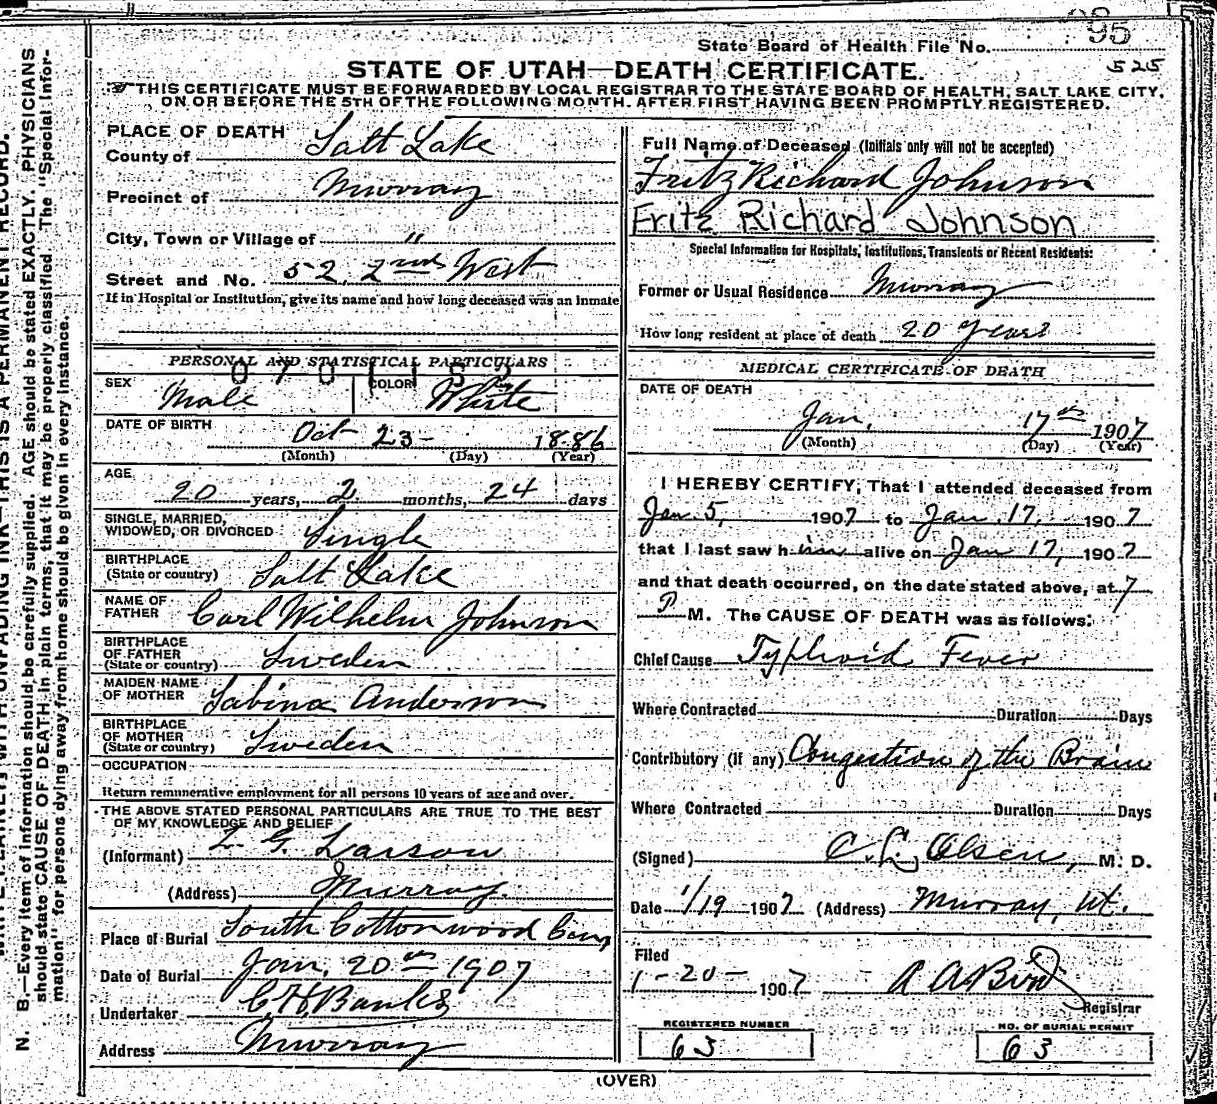 95
State Board of Health File No.
525
STATE OF UTAH—DEATH CERTIFICATE.
THIS CERTIFICATE MUST BE FORWARDED BY LOCAL REGISTRAR TO THE STATE BOARD OF HEALTH, SALT LAKE CITY,
ON OR BEFORE THE 5TH OF THE FOLLOWING MONTH. AFTER FIRST HAVING BEEN PROMPTLY REGISTERED.
PLACE OF DEATH
County of Salt Lake
Precinct of Murray
City, Town or Village of "
Street and No. 52, 2nd West
If in Hospital or Institution, give its name and how long deceased was an inmate
PERSONAL AND STATISTICAL PARTICULARS
SEX Male COLOR White
DATE OF BIRTH Oct 23- 1886
(Month) (Day) (Year)
AGE
20 years, 2 months, 24 days
SINGLE, MARRIED,
WIDOWED, OR DIVORCED Single
BIRTHPLACE
(State or country) Salt Lake
NAME OF
FATHER Carl Wilhelm Johnson
BIRTHPLACE
OF FATHER
(State or country) Sweden
MAIDEN NAME
OF MOTHER Sabina Anderson
BIRTHPLACE
OF MOTHER
(State or country) Sweden
OCCUPATION
Return remunerative employment for all persons 10 years of age and over.
THE ABOVE STATED PERSONAL PARTICULARS ARE TRUE TO THE BEST
OF MY KNOWLEDGE AND BELIEF
(Informant) L. G. Larson
(Address) Murray.
Place of Burial South Cottonwood Cem,
Date of Burial Jan. 20th 1907
Undertaker Banks
Address Murray
Full Name of Deceased (Initials only will not be accepted)
Fritz Richard Johnson
Fritz Richard Johnson
Special Information for Hospitals, Institutions, Transients or Recent Residents:
Former or Usual Residence Murray
How long resident at place of death 20 Years
MEDICAL CERTIFICATE OF DEATH
DATE OF DEATH
Jan. 17th 1907
(Month) (Day) (Year)
I HEREBY CERTIFY, That I attended deceased from
Jan. 5, 1907 to Jan. 17, 1907
that I last saw him alive on Jan 17, 1907
and that death occurred, on the date stated above, at 7
P M. The CAUSE OF DEATH was as follows:
Chief Cause Typhoid Fever
Where Contracted Duration Days
Contributory (if any) Congestion of the Brain
Where Contracted Duration Days
(Signed) C. L. Olsen, M. D.
Date 1/19 1907 (Address) Murray, Ut.
Filed
1-20- 1907 Bird
Registrar
REGISTERED NUMBER
63
NO. OF BURIAL PERMIT
63
(OVER)
N. B.—Every item of information should be carefully supplied. AGE should be stated EXACTLY. PHYSICIANS
should state CAUSE OF DEATH in plain terms, that it may be properly classified. The "Special Infor-
mation" for persons dying away from home should be given in every instance.